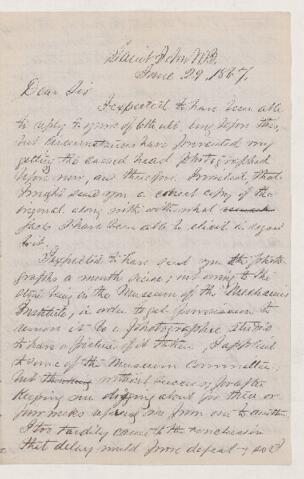 Saint John N.B.
June 29, 1867.
Dear Sir
I expected to have been able
to reply to yours of 6th ult. long before this,
but circumstances have prevented my
getting the carved head photographed
before now, and therefore I waited, that
I might send you a correct copy of the
original along with
facts I have been able to elicit in regard
to it.
I expected to have sent you the photo-
graphs a month since; but owing to the
stone being in the Museum of the Mechanics
Institute, in order to get permission to
remove it to a photographic studio
to have a picture of it taken, I applied
to some of the Museum Committee,
but without success, for after
keeping me dogging about for three or
four weeks me from one to another
I too tardily came to the conclusion
that delay would prove defeat & so I